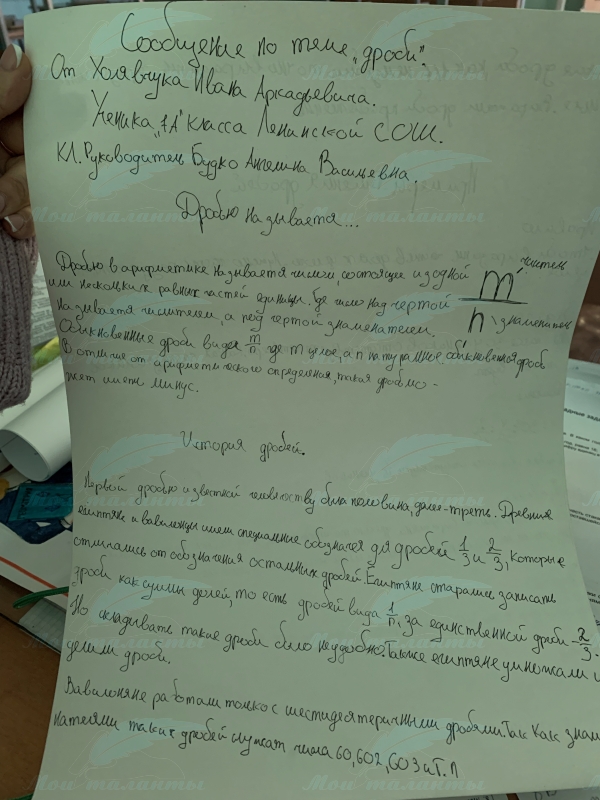 Сообщение по теме „дроби".
От Холявчука Ивана Аркадьевича.
Ученика „7А" класса Ленинской СОШ.
Кл. Руководитель Будко Ангелина Васильевна.
Дробью называется...
Дробью в арифметике называется число, состоящее из одной
или нескольких равных частей единицы. Где число над чертой
называется числителем, а под чертой знаменателем.
m числитель
n знаменатель
Обыкновенные дроби вида m/n где m целое, а n натуральное обыкновенная дробь
В отличие от арифметического определения, такая дробь мо-
жет иметь минус.
История дробей.
Первой дробью известной человечеству была половина, далее-треть. Древние
египтяне и вавилонцы имели специальные для дробей 1/3 и 2/3, которые
отличались от обозначения остальных дробей. Египтяне старались записать
дроби как суммы долей, то есть дробей вида 1/n, за единственной дроби - 2/3.
Но складывать такие дроби было неудобно. Также египтяне умножали и
делили дроби.
Вавилоняне работали только с шестидесятеричными дробями. Так как знаме
нателями таких дробей служат числа 60, 602, 603 и т. п
Мои таланты
Мои таланты
Мои таланты
Мои таланты